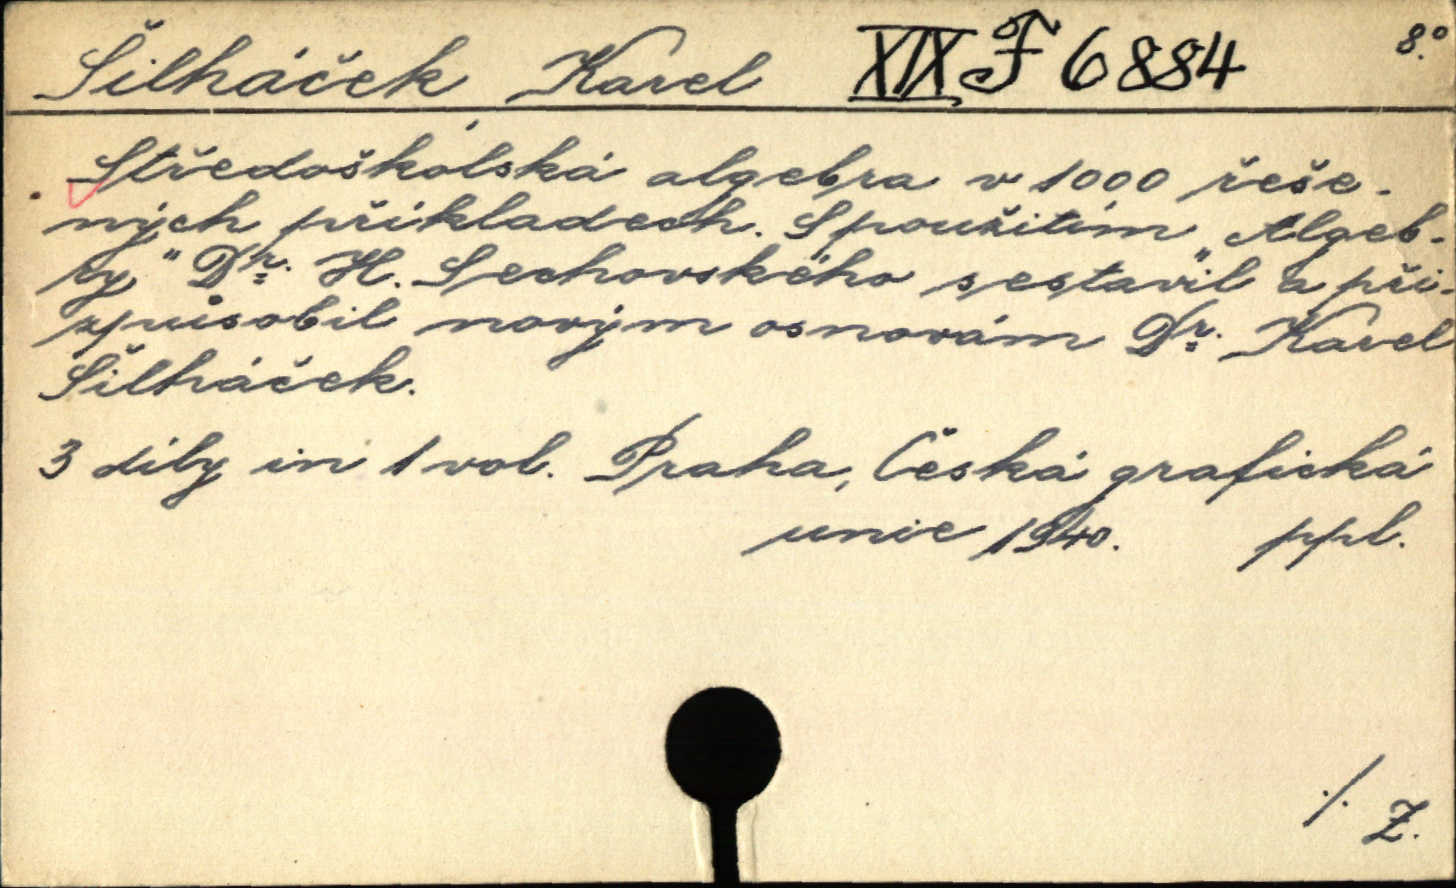 Šilháček Karel XIX F 6884 8.°
Středoškolská algebra v 1000 řeše-
ných příkladech. S použitím „Algeb-
ry" Dr. H. Sechovského sestavil a při-
způsobil novým osnovám Dr. Karel
Šilháček.
3 díly in 1 vol. Praha, Česká grafická
unie 1940. ppl.
./.
Z.